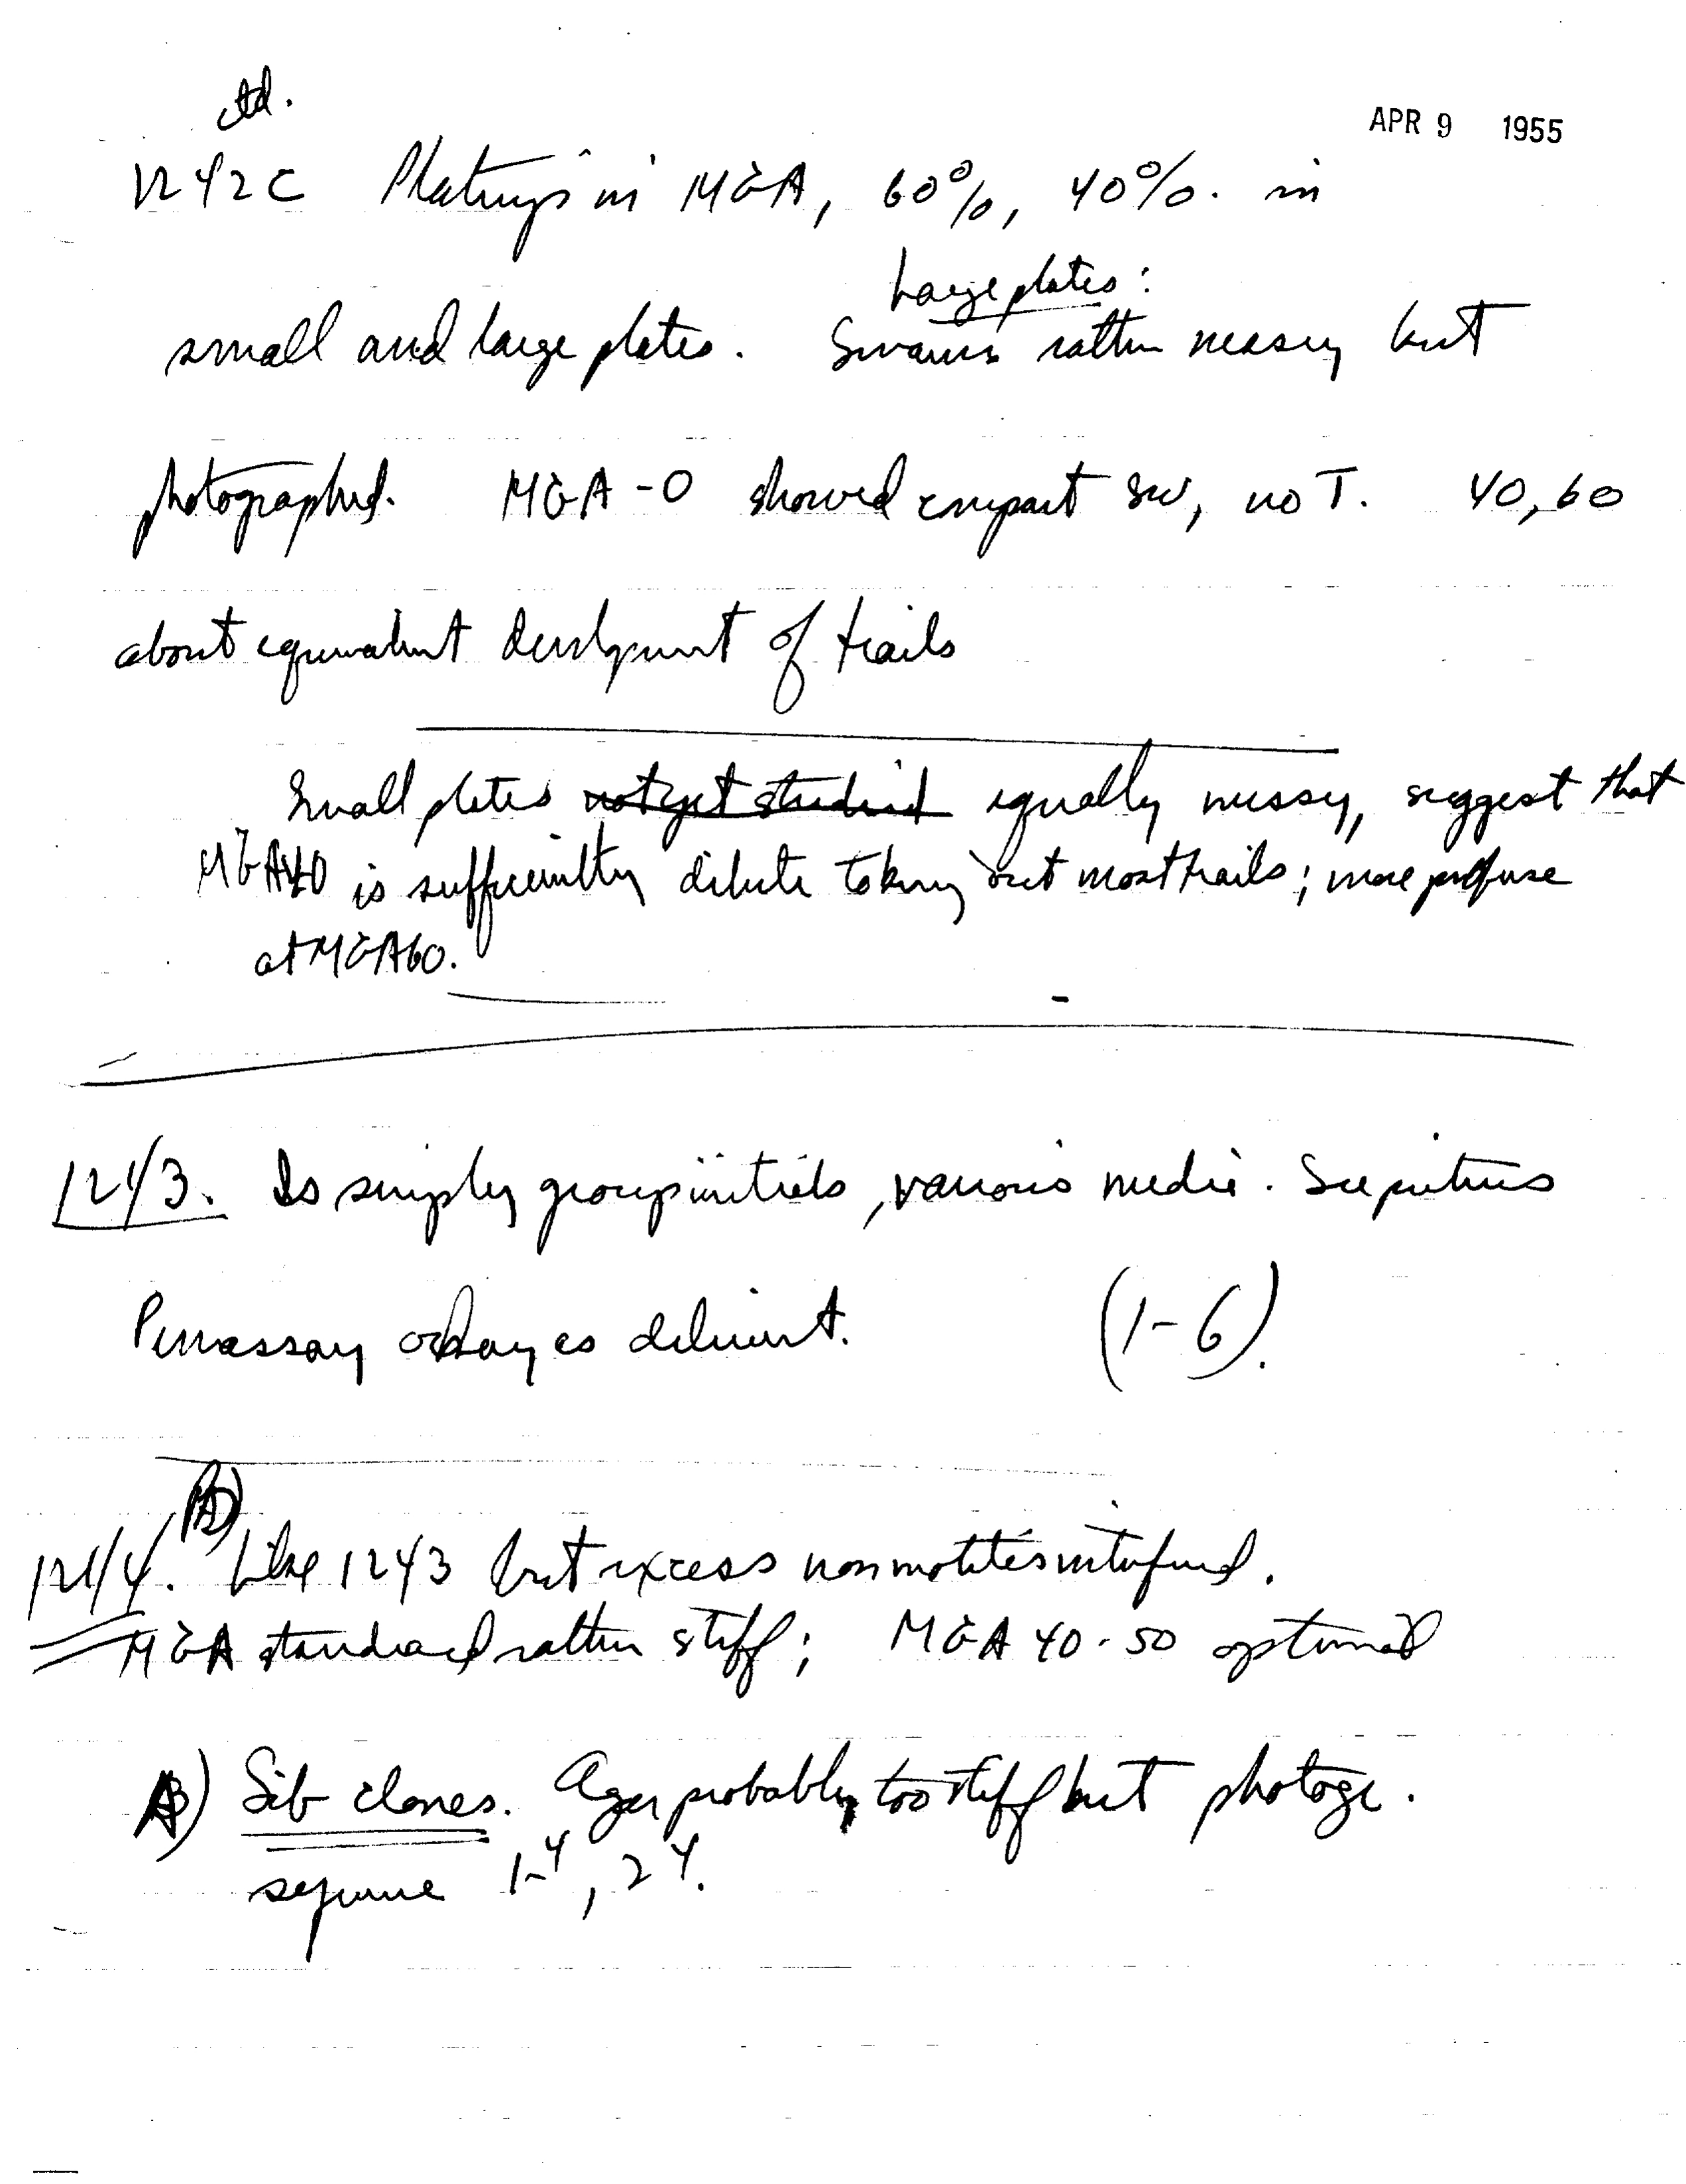 ctd.
APR 9 1955
1242C Platings in MGA, 60%, 40%. in
Large plates:
small and large plates. Swarms rather messy but
photographed. MGA-0 showed compact sw, no T. 40, 60
about equivalent development of trails
Small plates not yet studied equally messy, suggest that
MGA40 is sufficiently dilute to bring out most trails; more profuse
at MGA60.
1243. Is simply group initials, various media. See pictures
Penassay okay as diluent. (1-6).
1244. Like 1243 but excess nonmotiles interfered.
MGA standard rather stiff; MGA 40-50 optimal
Sib clones. Agar probably too stiff but photogr.
1-4, 24.